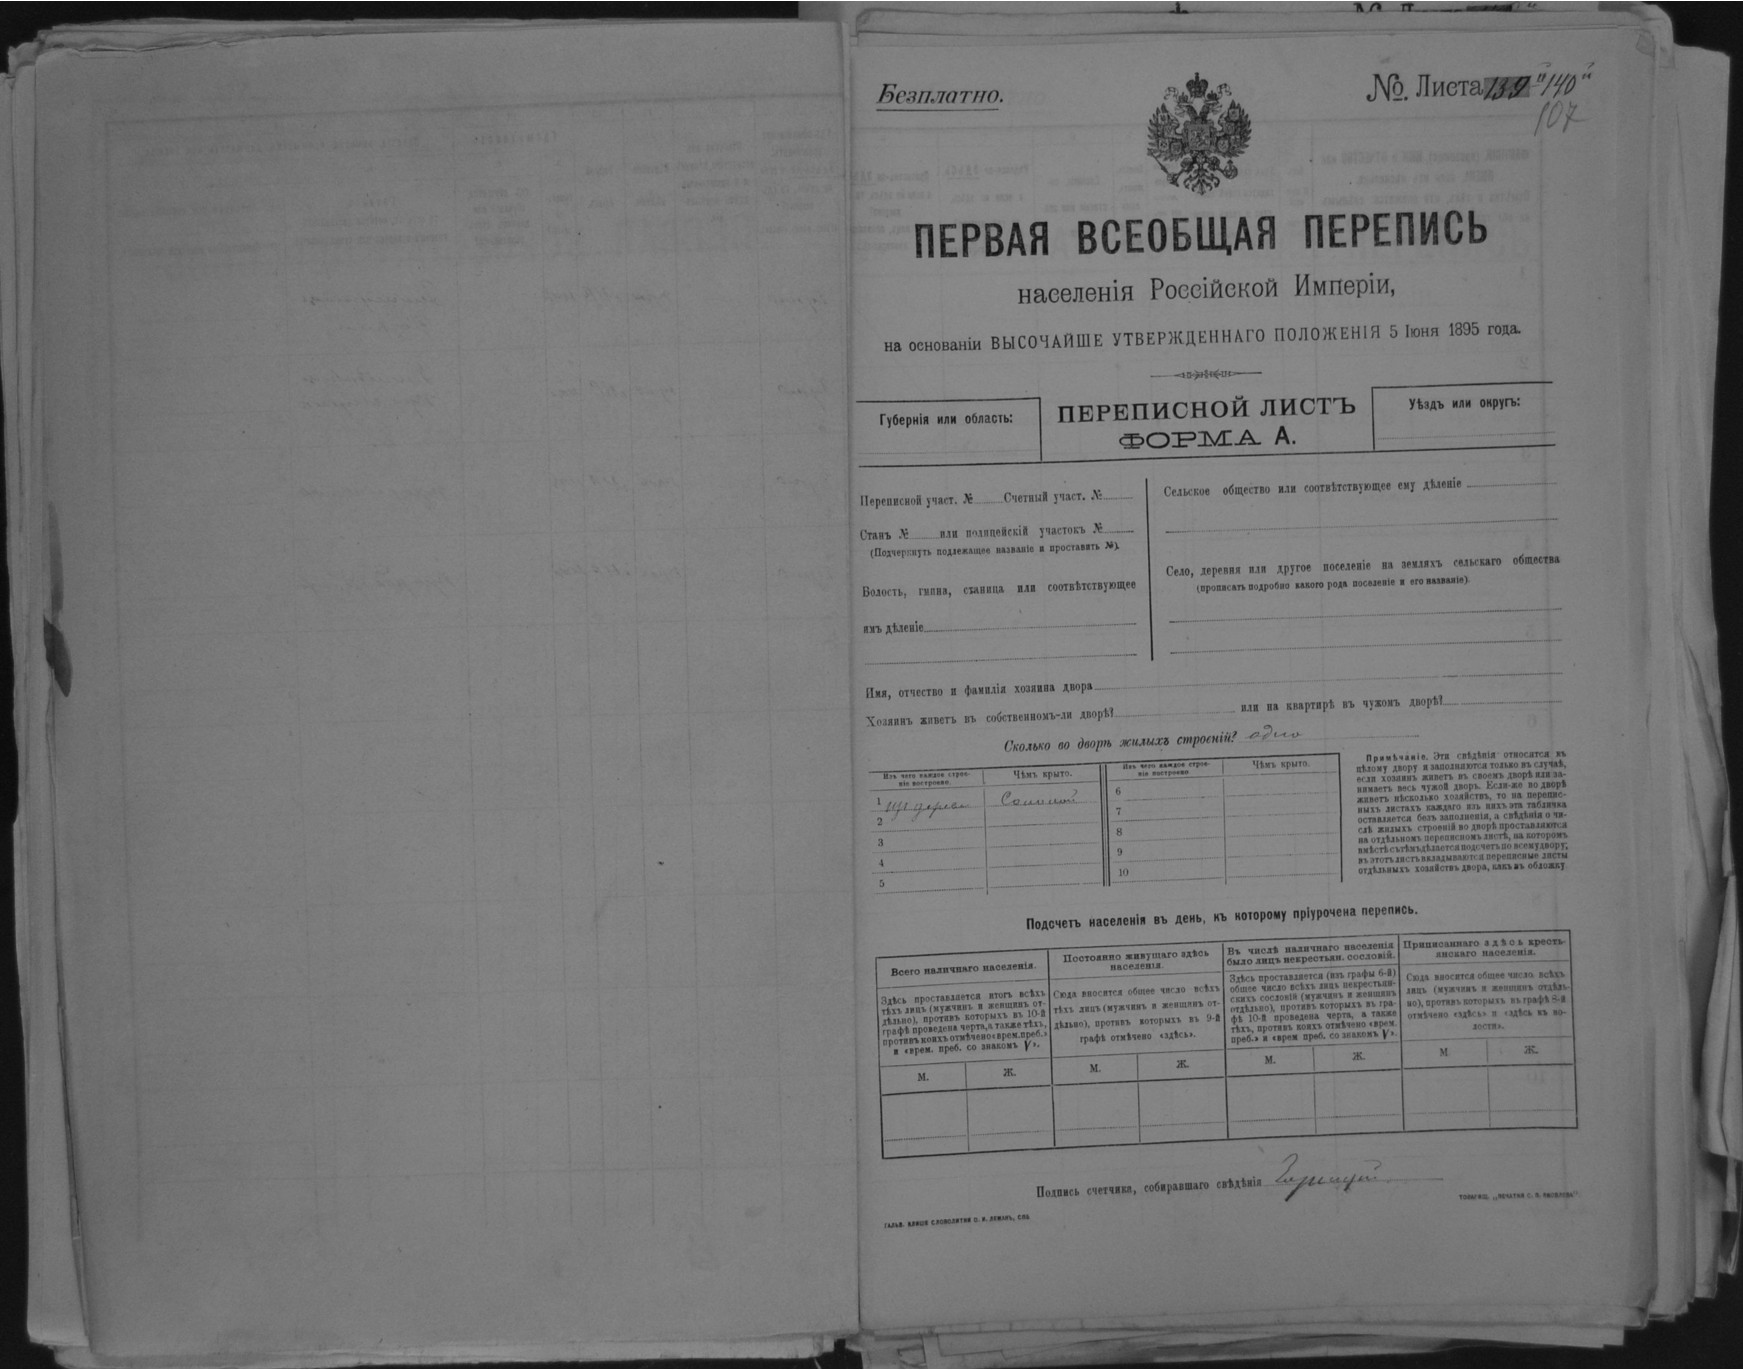 Безплатно.
№. Листа 139 "140"
107
ПЕРВАЯ ВСЕОБЩАЯ ПЕРЕПИСЬ
населенія Россійской Имперіи,
на основаніи ВЫСОЧАЙШЕ УТВЕРЖДЕННАГО ПОЛОЖЕНІЯ 5 Іюня 1895 года.
Губернія или область:
ПЕРЕПИСНОЙ ЛИСТЪ
ФОРМА А.
Уѣздъ или округъ:
Переписной участ. № Счетный участ. №
Станъ № или полицейскій участокъ №
(Подчеркнуть подлежащее названіе и проставить №).
Волость, гмина, станица или соотвѣтствующее
имъ дѣленіе
Сельское общество или соотвѣтствующее ему дѣленіе
Село, деревня или другое поселеніе на земляхъ сельскаго общества
(прописать подробно какого рода поселеніе и его названіе).
Имя, отчество и фамилія хозяина двора
Хозяинъ живетъ въ собственномъ-ли дворѣ? или на квартирѣ въ чужомъ дворѣ?
Сколько во дворѣ жилыхъ строеній? одно
Изъ чего каждое строе-
ніе построено.
Чѣмъ крыто.
Изъ чего каждое строе-
ніе построено.
Чѣмъ крыто.
1 изъ дерева Соломой
2
3
4
5
6
7
8
9
10
Примѣчаніе. Эти свѣдѣнія относятся къ
цѣлому двору и заполняются только въ случаѣ,
если хозяинъ живетъ въ своемъ дворѣ или за-
нимаетъ весь чужой дворъ. Если-же во дворѣ
живетъ нѣсколько хозяйствъ, то на перепис-
ныхъ листахъ каждаго изъ нихъ эта табличка
оставляется безъ заполненія, а свѣдѣнія о чи-
слѣ жилыхъ строеній во дворѣ проставляются
на отдѣльномъ переписномъ листѣ, на которомъ
вмѣстѣ съ тѣмъ дѣлается подсчетъ по всему двору;
въ этотъ листъ вкладываются переписные листы
отдѣльныхъ хозяйствъ двора, какъ въ обложку
Подсчетъ населенія въ день, къ которому пріурочена перепись.
Всего наличнаго населенія.
Здѣсь проставляется итогъ всѣхъ
тѣхъ лицъ (мужчинъ и женщинъ от-
дѣльно), противъ которыхъ въ 10-й
графѣ проведена черта, а также тѣхъ,
противъ коихъ отмѣчено «врем. преб.»
и «врем. преб. со знакомъ V».
М. Ж.
Постоянно живущаго здѣсь
населенія.
Сюда вносится общее число всѣхъ
тѣхъ лицъ (мужчинъ и женщинъ от-
дѣльно), противъ которыхъ въ 9-й
графѣ отмѣчено «здѣсь».
М. Ж.
Въ числѣ наличнаго населенія
было лицъ некрестьян. сословій.
Здѣсь проставляется (изъ графы 6-й)
общее число всѣхъ лицъ некрестьян-
скихъ сословій (мужчинъ и женщинъ
отдѣльно), противъ которыхъ въ гра-
фѣ 10-й проведена черта, а также
тѣхъ, противъ коихъ отмѣчено «врем.
преб.» и «врем преб. со знакомъ V».
М. Ж.
Приписаннаго здѣсь кресть-
янскаго населенія.
Сюда вносится общее число всѣхъ
лицъ (мужчинъ и женщинъ отдѣль-
но), противъ которыхъ въ графѣ 8-й
отмѣчено «здѣсь» и «здѣсь въ во-
лости».
М Ж.
Подпись счетчика, собиравшаго свѣдѣнія
ГАЛЬВ. КЛИШЕ СЛОВОЛИТНИ О. И. ЛЕМАНЪ, СПБ
ТОВАРИЩ. „ПЕЧАТНЯ С. П. ЯКОВЛЕВА"